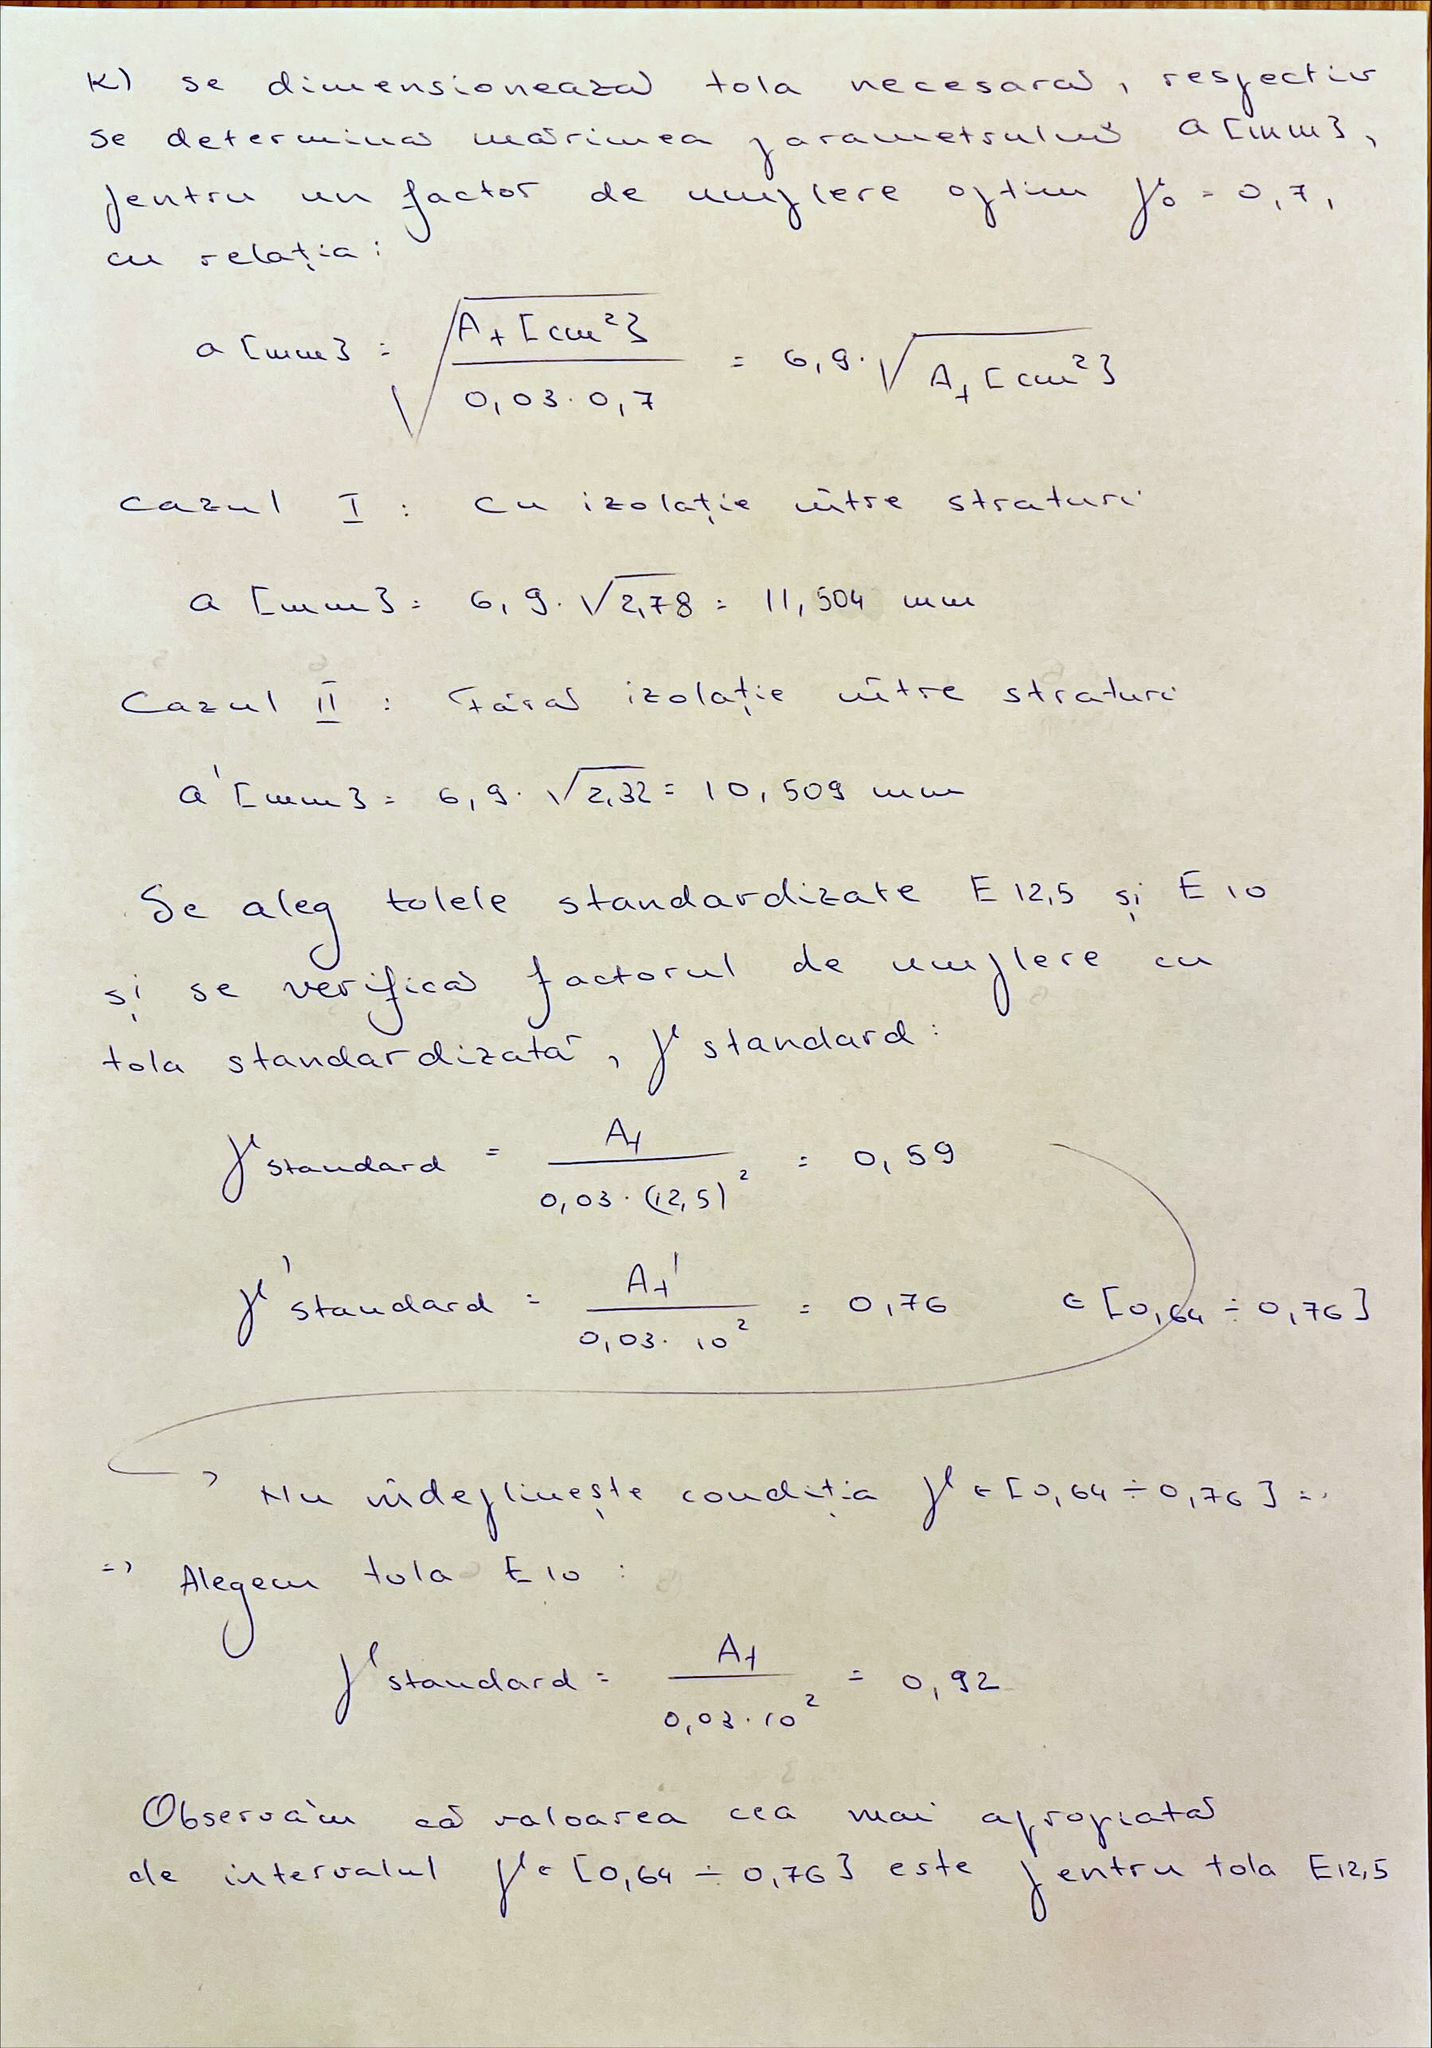 k) se dimensionează tola necesară, respectiv
se determină mărimea parametrului a [mm],
pentru un factor de umplere optim γ₀ = 0,7,
cu relația:
a [mm] = √(A_t [cm²] / 0,03 · 0,7) = 6,9 · √A_t [cm²]
Cazul I : Cu izolație între straturi
a [mm] = 6,9 · √2,78 = 11,504 mm
Cazul II : Fără izolație între straturi
a' [mm] = 6,9 · √2,32 = 10,509 mm
Se aleg tolele standardizate E 12,5 și E 10
și se verifică factorul de umplere cu
tola standardizată, γ standard :
γ standard = A_t / 0,03 · (12,5)² = 0,59
γ' standard = A_t' / 0,03 · 10² = 0,76 ∈ [0,64 ÷ 0,76]
→ Nu îndeplinește condiția γ ∈ [0,64 ÷ 0,76] =>
=> Alegem tola E10 :
γ standard = A_t / 0,03 · 10² = 0,92
Observăm că valoarea cea mai apropiată
de intervalul γ ∈ [0,64 ÷ 0,76] este pentru tola E12,5